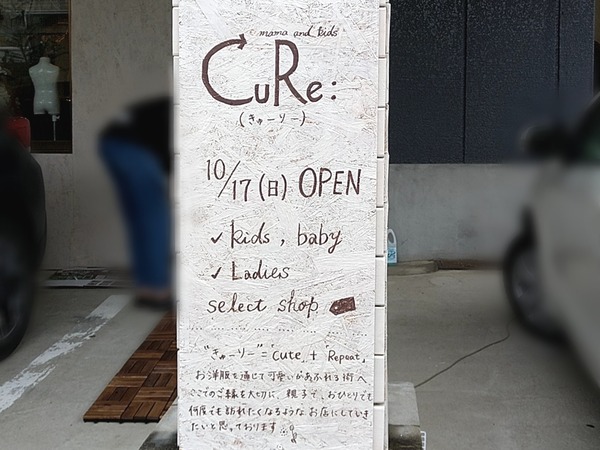 mama and kids
CuRe:
(きゅーりー)
10/17(日) OPEN
✓ kids , baby
✓ Ladies
select shop
"きゅーりー"="Cute"+"Repeat"
お洋服を通じて可愛いがあふれる街へ
ここでのご縁を大切に、親子で、おひとりでも
何度でも訪れたくなるような お店にしていき
たいと思っております